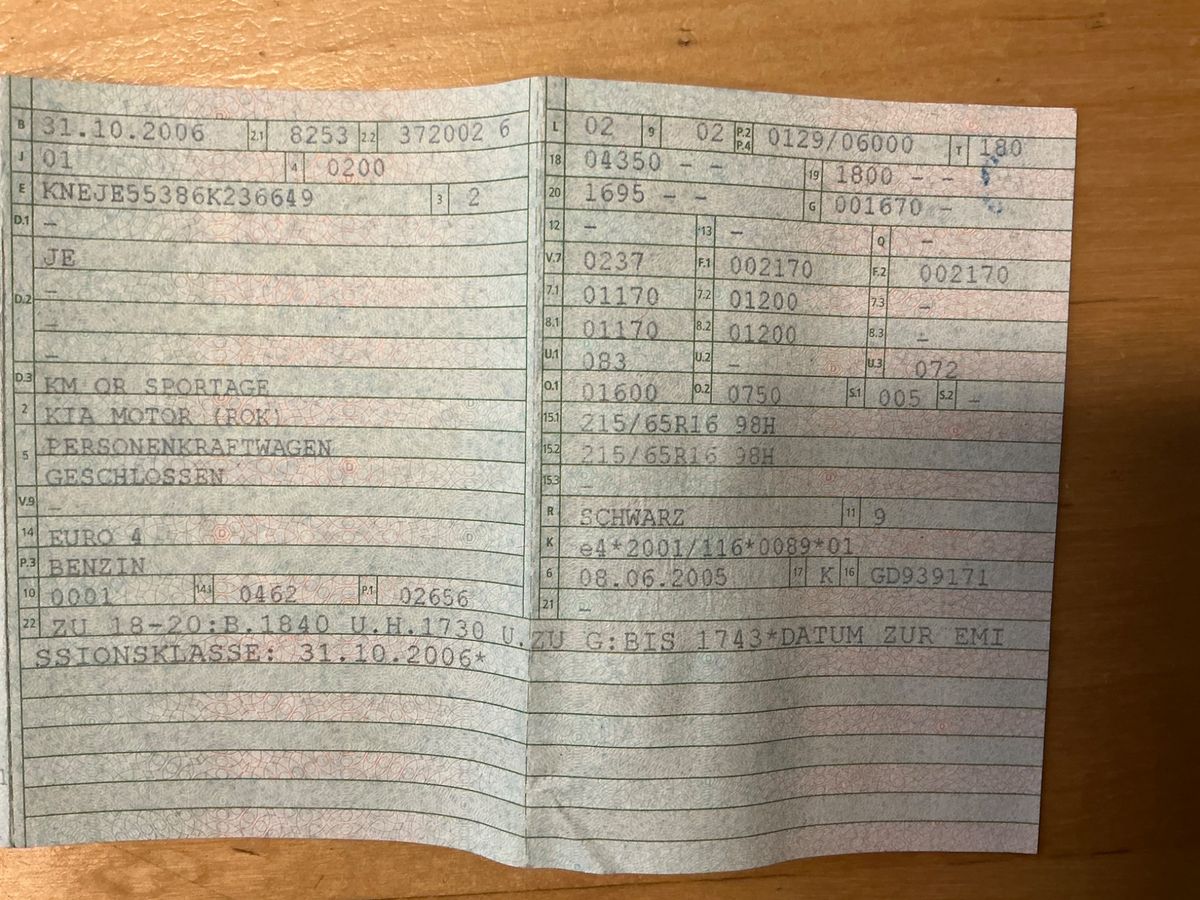 B 31.10.2006 2.1 8253 2.2 372002 6
J 01 4 0200
E KNEJE55386K236649 3 2
D.1 -
D.2 JE
-
-
-
D.3 KM OR SPORTAGE
2 KIA MOTOR (ROK)
5 PERSONENKRAFTWAGEN
GESCHLOSSEN
V.9 -
14 EURO 4
P.3 BENZIN
10 0001 14.1 0462 P.1 02656
L 02 9 02 P.2 P.4 0129/06000 T 180
18 04350 - - 19 1800 - -
20 1695 - - G 001670 -
12 - 13 - Q -
V.7 0237 F.1 002170 F.2 002170
7.1 01170 7.2 01200 7.3 -
8.1 01170 8.2 01200 8.3 -
U.1 083 U.2 - U.3 072
O.1 01600 O.2 0750 S.1 005 S.2 -
15.1 215/65R16 98H
15.2 215/65R16 98H
15.3 -
R SCHWARZ 11 9
K e4*2001/116*0089*01
6 08.06.2005 17 K 16 GD939171
21 -
22 ZU 18-20:B.1840 U.H.1730 U.ZU G:BIS 1743*DATUM ZUR EMI
SSIONSKLASSE: 31.10.2006*